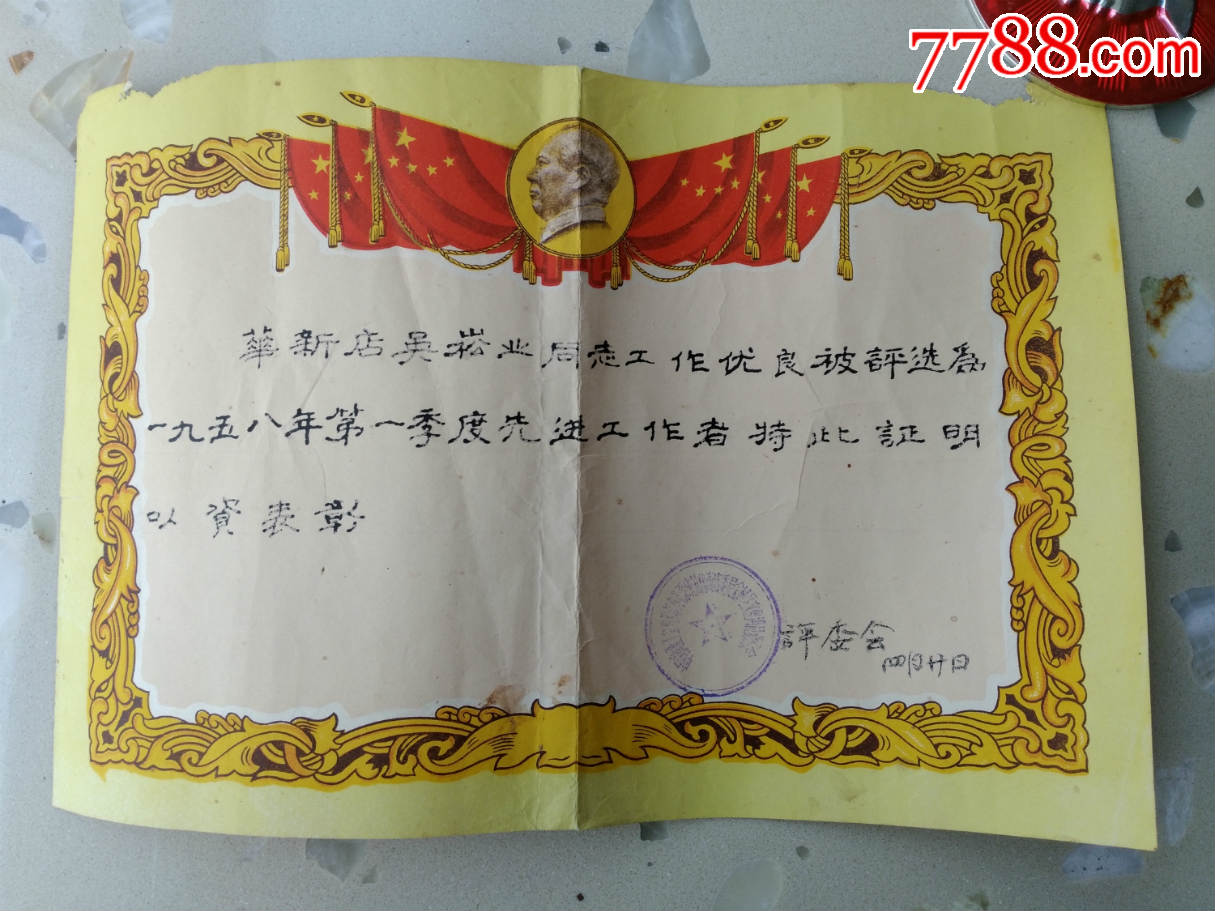 7788.com
華新店吴崧业同志工作优良被評选為
一九五八年第一季度先进工作者特此証明
以資表彰
評委会
四月廿日